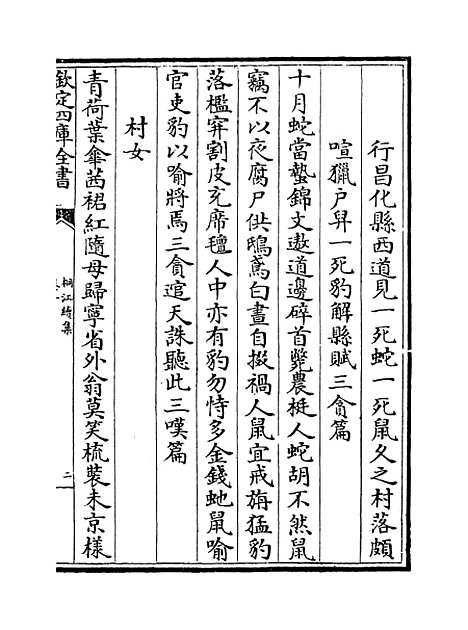 行昌化縣西道見一死蛇一死鼠久之村落頗
喧獵户舁一死豹解縣賦三貪篇
十月蛇當蟄錦文遨道邊碎首斃農梃人蛇胡不然鼠
竊不以夜腐尸供鴟鳶白晝自掇禍人鼠宜戒旃猛豹
落檻穽割皮充席氊人中亦有豹勿恃多金錢虵鼠喻
官吏豹以喻將焉三貪逭天誅聽此三嘆篇
村女
青荷葉傘茜裙紅隨母歸寧省外翁莫笑梳裝未京樣
欽定四庫全書
桐江續集
二